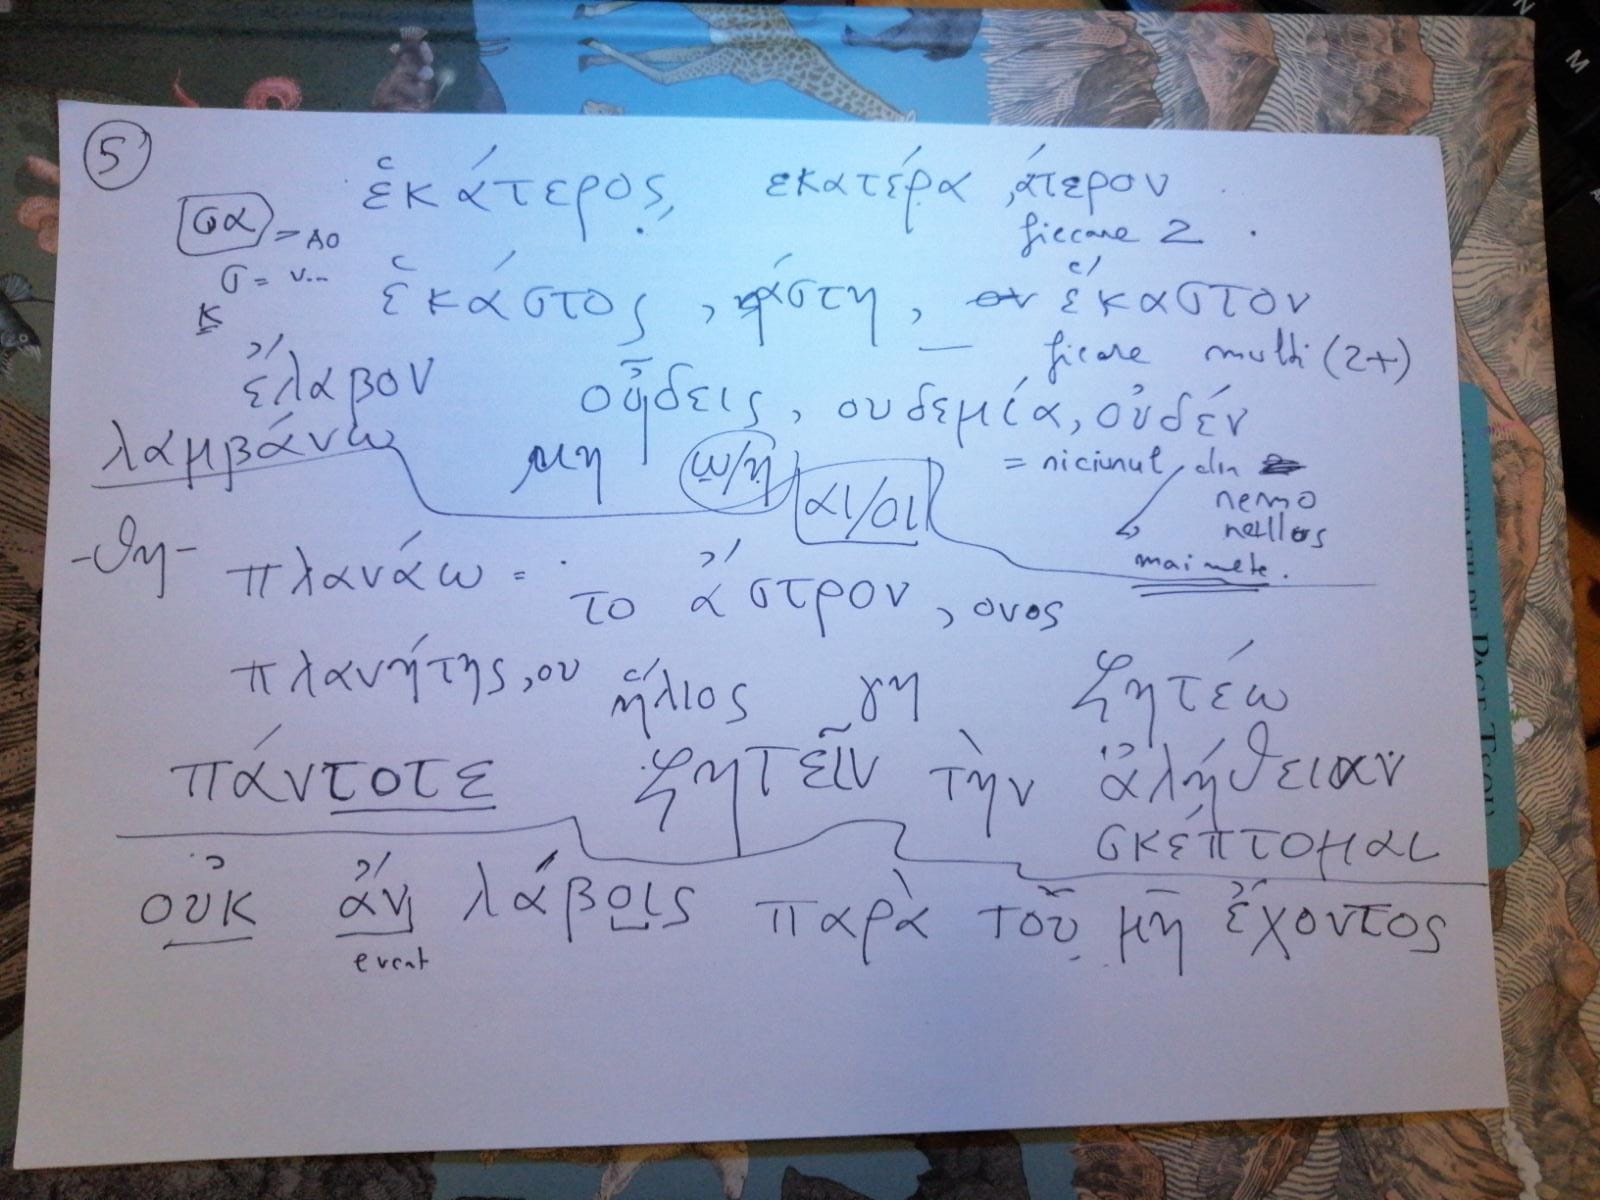 5
ἑκάτερος, εκατέρα, άτερον
σα = AO
fiecare 2
σ = v...
κ
ἑκάστος, άστη, ἕκαστον
ficare multi (2+)
ἔλαβον
οὖδεις, ουδεμία, οὐδέν
λαμβάνω
μη ω/η
αι/οι
= niciunul din
nemo
nullus
mai mete.
-θη- πλανάω =
το ἄστρον, ονος
πλανήτης, ου ἥλιος γη ζητέω
πάντοτε ζητεῖν τὴν ἀλήθειαν
σκέπτομαι
οὐκ ἄν λάβοις παρὰ τοῦ μῆ ἔχοντος
event